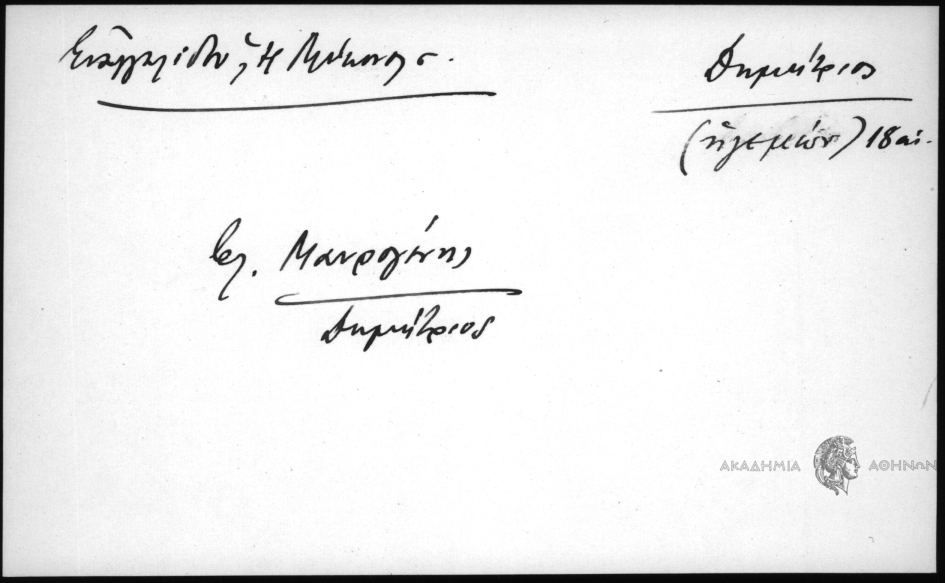 Εὐαγγελίδου, Ἡ Μύκονος.
Δημήτριος
(ἡγεμών) 18 αἰ.
βλ. Μαυρογένης
Δημήτριος
ΑΚΑΔΗΜΙΑ ΑΘΗΝΩΝ